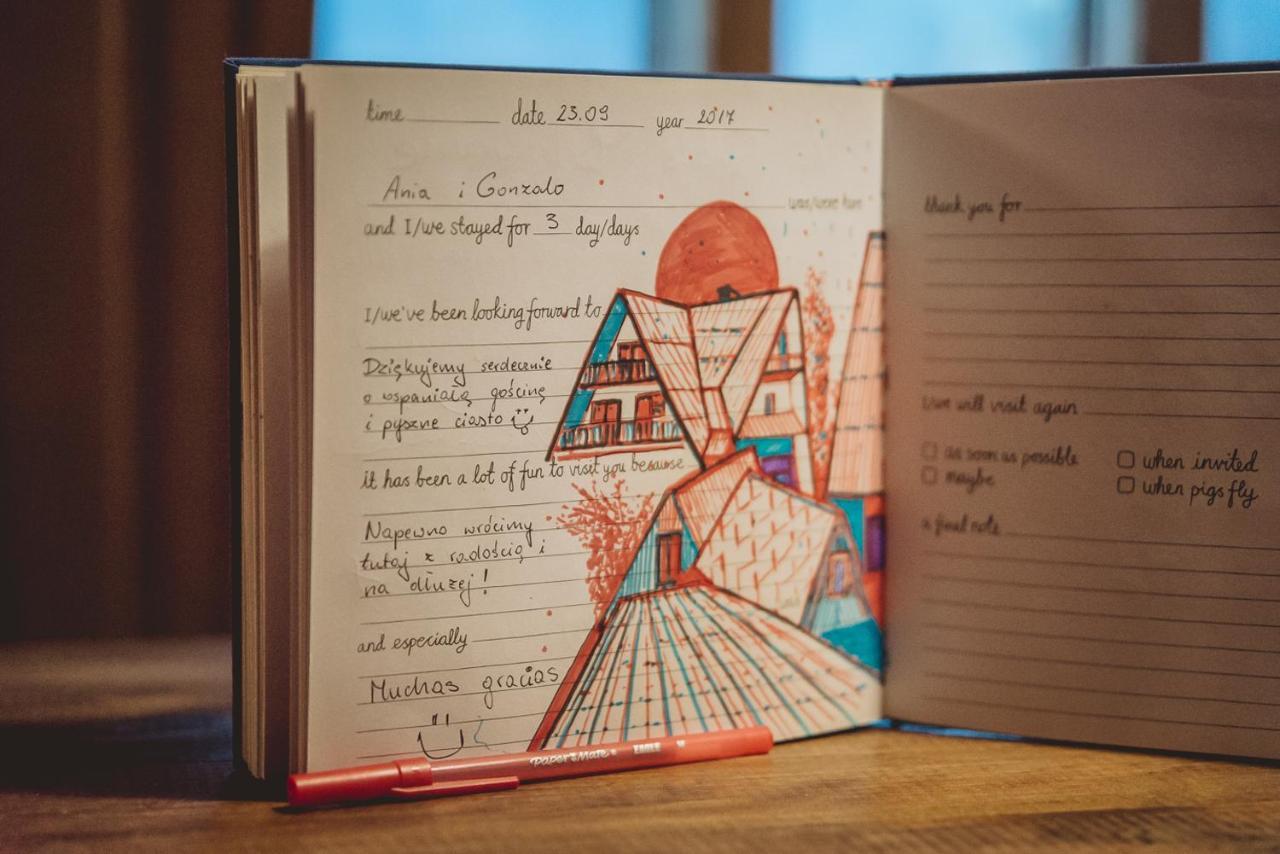 time date 23.09 year 2017
Ania i Gonzalo
was/were here
and I/we stayed for 3 day/days
I/we've been looking forward to
Dziękujemy serdecznie
o wspaniałą gościnę
i pyszne ciasto
it has been a lot of fun to visit you because
Napewno wrócimy
tutaj z radością i
na dłużej!
and especially
Muchas gracias
PAPER MATE
thank you for
I/we will visit again
as soon as possible
maybe
when invited
when pigs fly
a final note